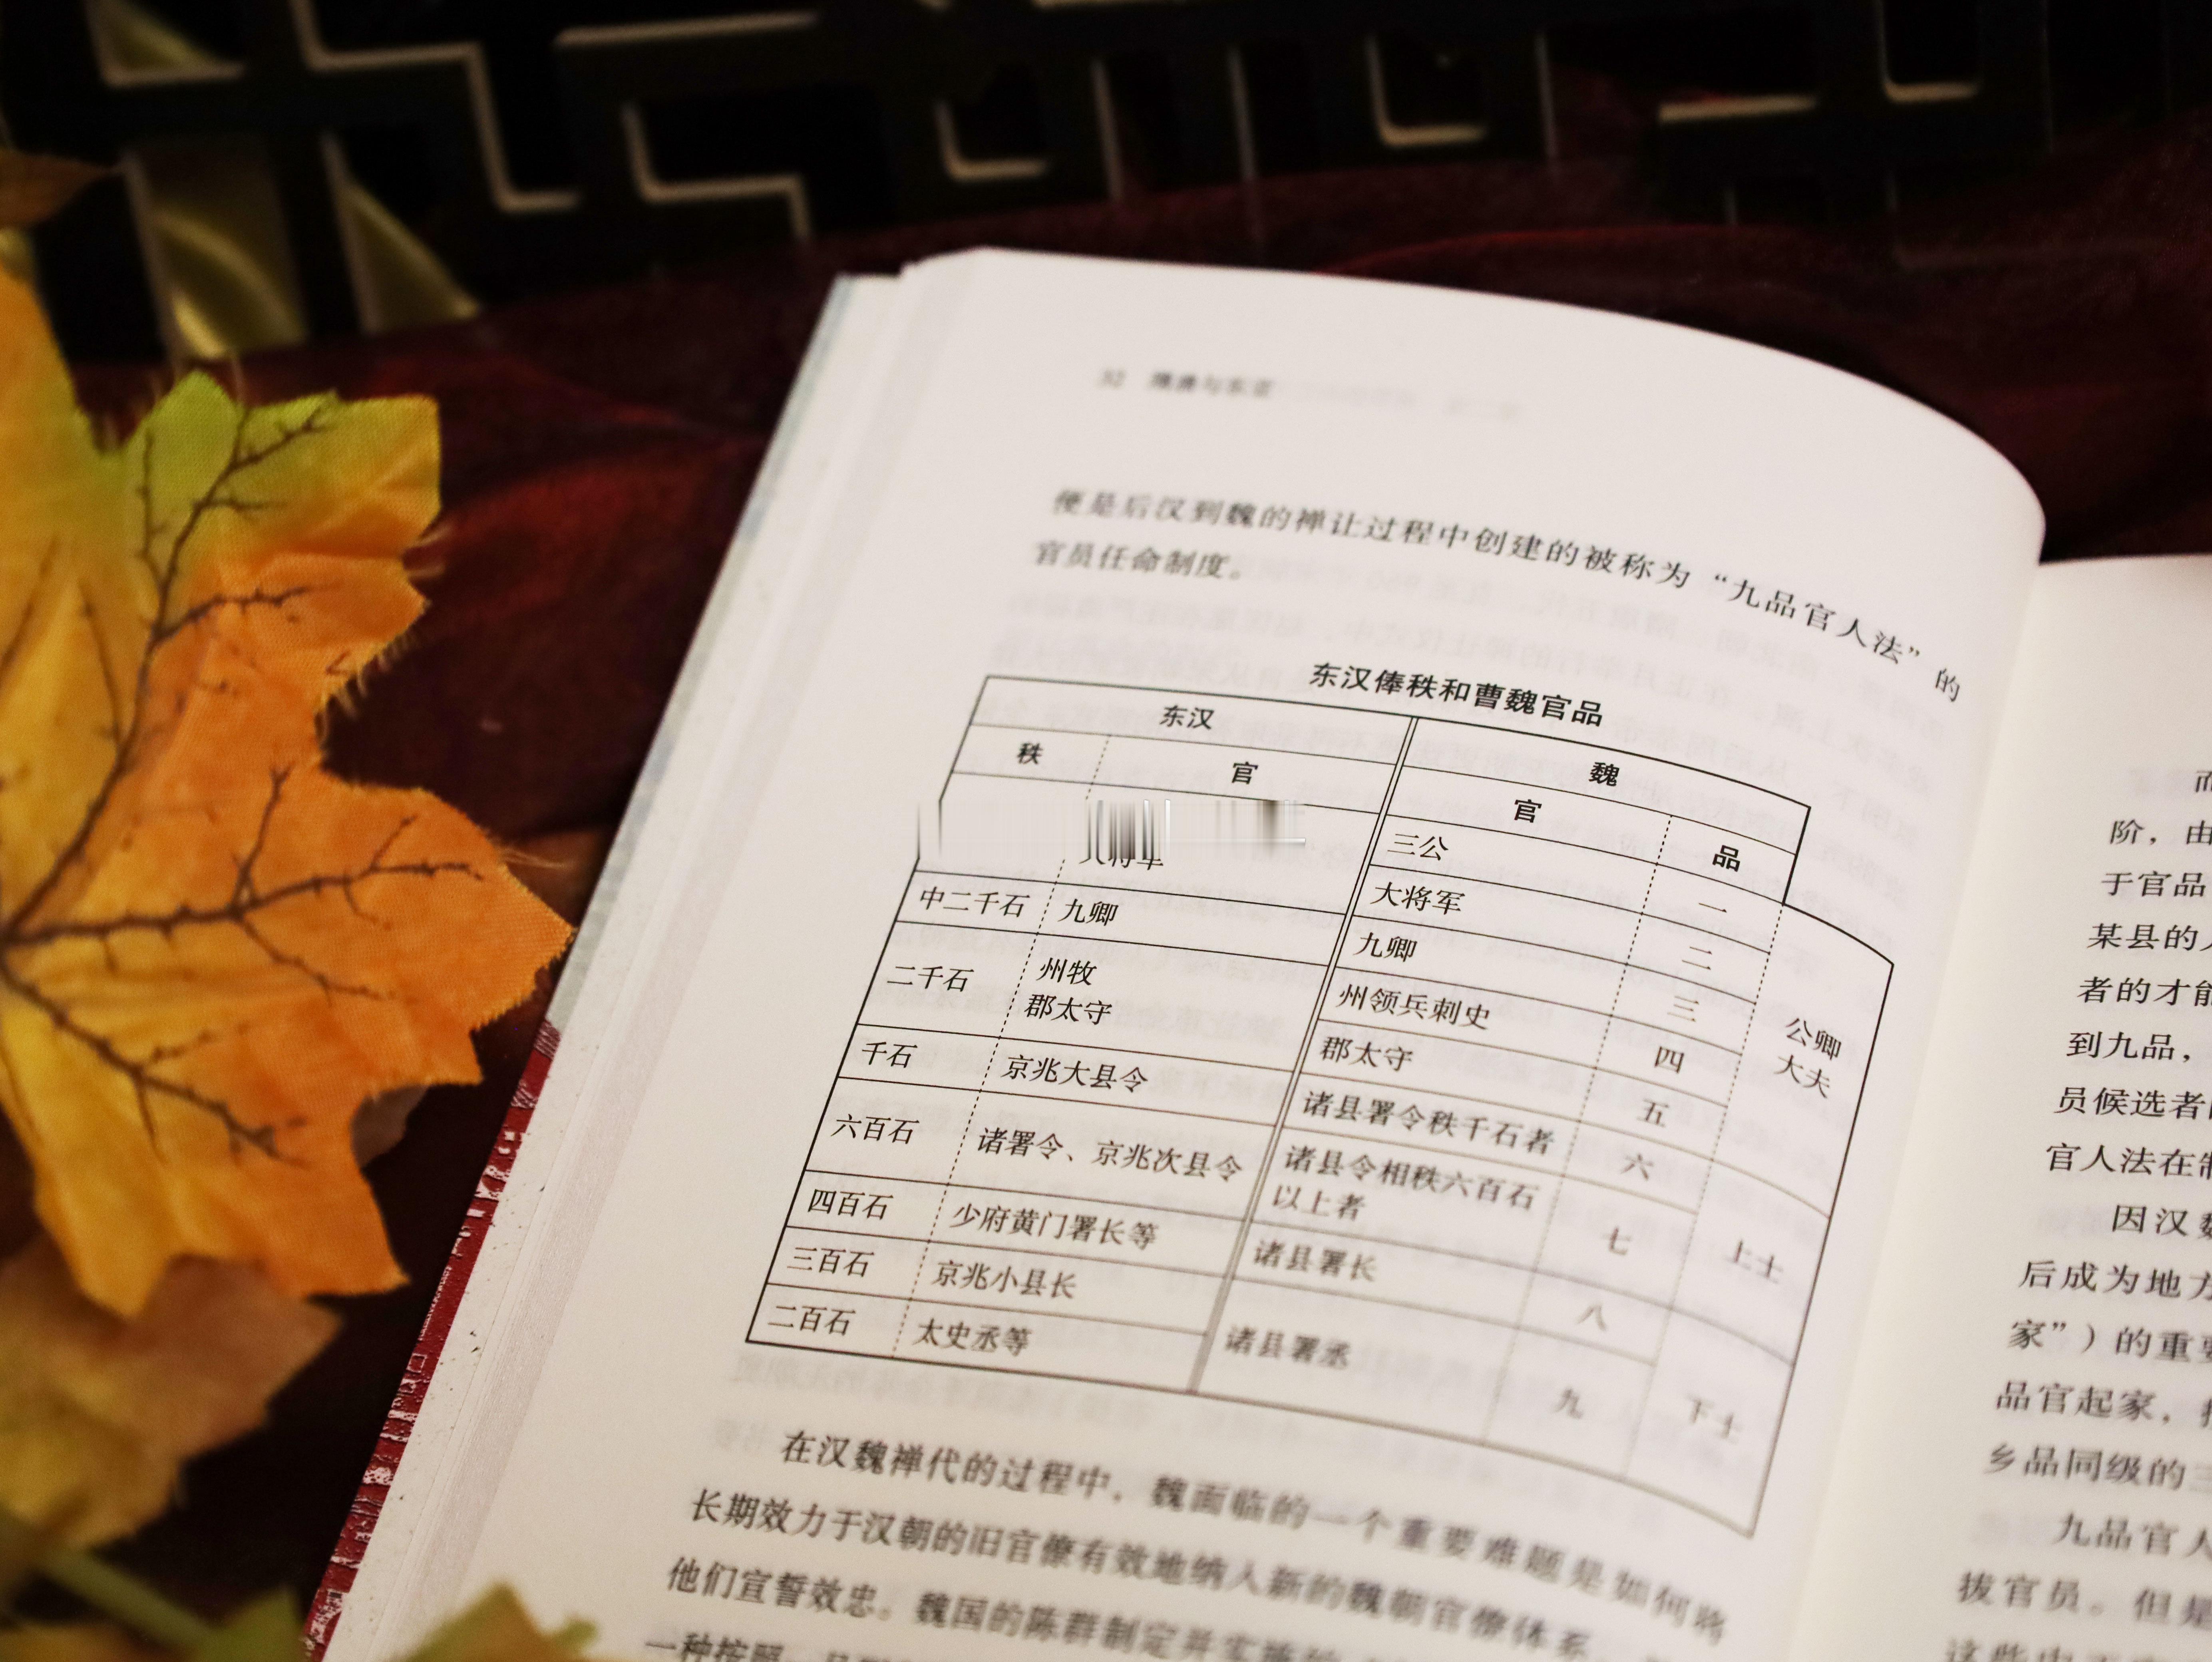 32
便是后汉到魏的禅让过程中创建的被称为“九品官人法”的
官员任命制度。
东汉俸秩和曹魏官品
东汉 魏
秩 官 官 品
三公 一
大将军 二
中二千石 九卿 九卿 三
二千石 州牧 州领兵刺史 四 公卿
郡太守 郡太守 五 大夫
千石 京兆大县令 诸县署令秩千石者 六
六百石 诸署令、京兆次县令 诸县令相秩六百石
以上者 七 上士
四百石 少府黄门署长等 诸县署长 八
三百石 京兆小县长
二百石 太史丞等 诸县署丞 九 下士
在汉魏禅代的过程中，魏面临的一个重要难题是如何将
长期效力于汉朝的旧官僚有效地纳入新的魏朝官僚体系，
他们宣誓效忠。魏国的陈群制定并实施
一种按照
阶，由
于官品
某县的
者的才能
到九品，
员候选者
官人法在
因汉魏
后成为地方
家”）的重要
品官起家，
乡品同级的三
九品官人
拔官员。但是